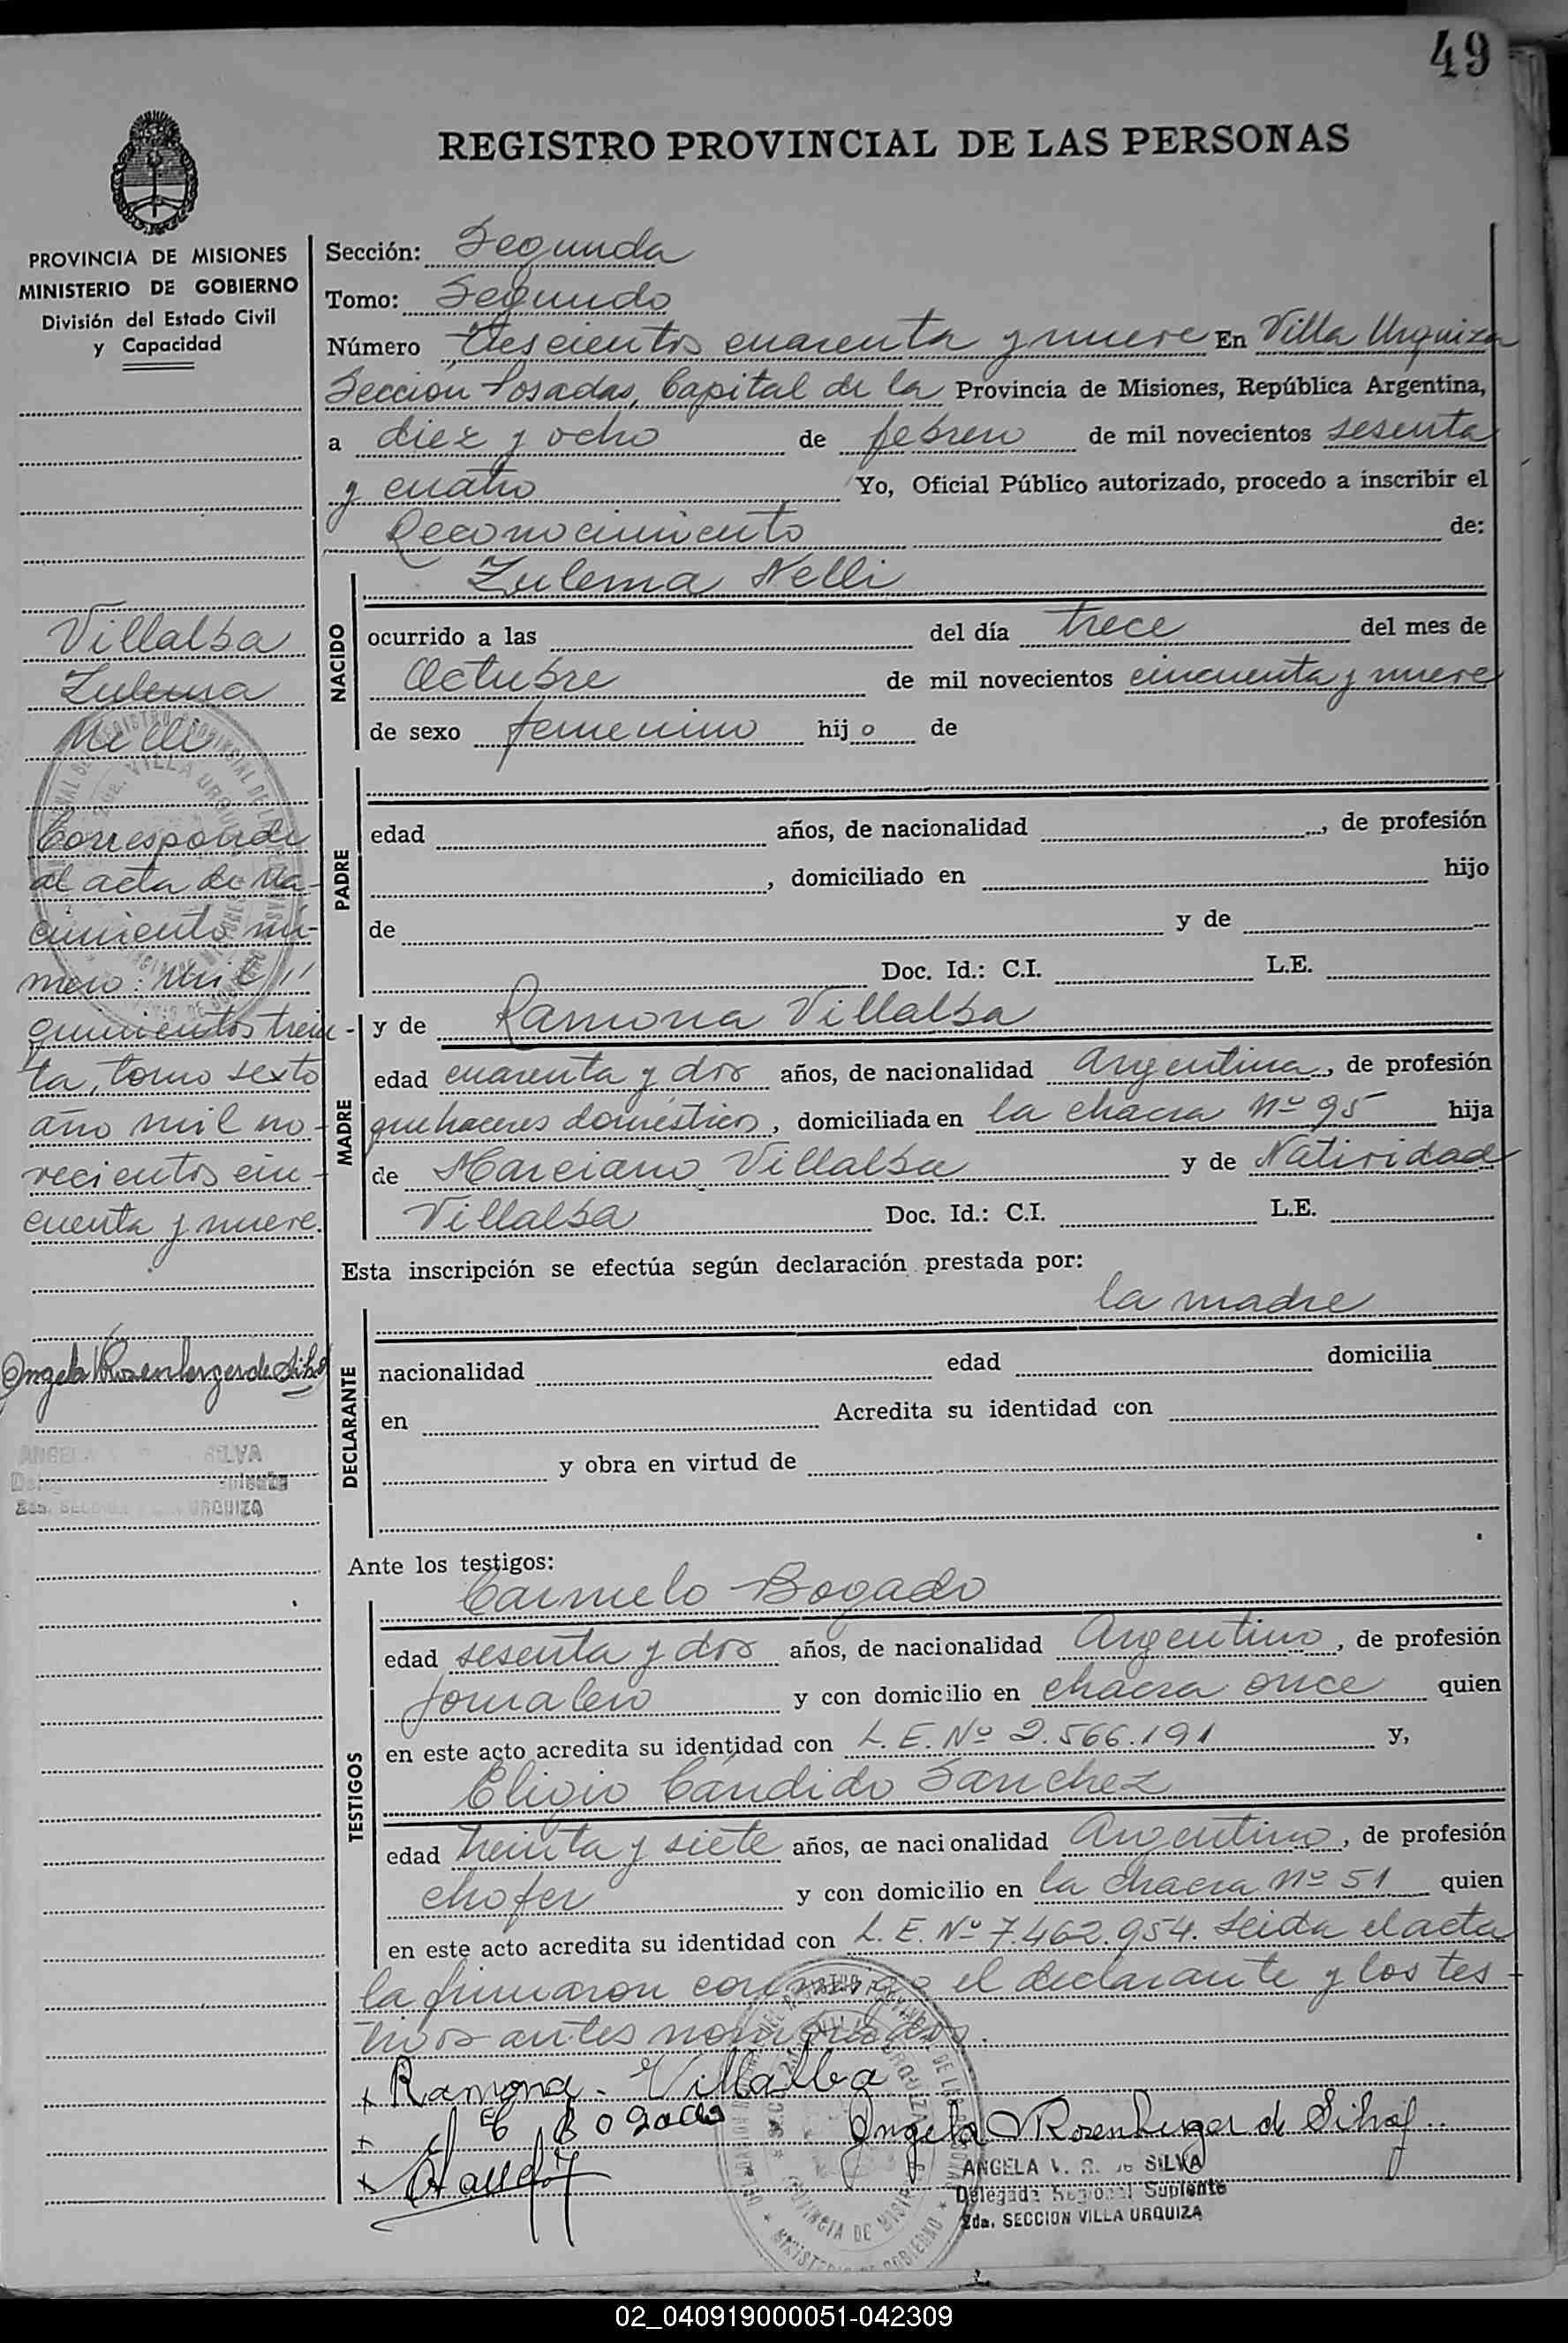 49
REGISTRO PROVINCIAL DE LAS PERSONAS
PROVINCIA DE MISIONES
MINISTERIO DE GOBIERNO
División del Estado Civil
y Capacidad
Villalba
Zulema
Nelli
Corresponde
al acta de na-
cimiento nú-
mero: mil
quinientos trein-
ta, tomo sexto
año mil no-
vecientos cin-
cuenta y nueve.
Angela Rosenberger de Silva
SILVA
URQUIZA
Sección: Segunda
Tomo: Segundo
Número Trescientos cuarenta y nueve En Villa Urquiza
Seccion Posadas, Capital de la Provincia de Misiones, República Argentina,
a diez y ocho de febrero de mil novecientos sesenta
y cuatro Yo, Oficial Público autorizado, procedo a inscribir el
Reconocimiento de:
Zulema Nelli
NACIDO
ocurrido a las del día trece del mes de
Octubre de mil novecientos cincuenta y nueve
de sexo femenino hijo de
PADRE
edad años, de nacionalidad , de profesión
, domiciliado en hijo
de y de
Doc. Id.: C.I. L.E.
y de Ramona Villalba
MADRE
edad cuarenta y dos años, de nacionalidad Argentina, de profesión
quehaceres domésticos, domiciliada en la chacra Nº 95 hija
de Marciano Villalba y de Natividad
Villalba Doc. Id.: C.I. L.E.
Esta inscripción se efectúa según declaración prestada por:
la madre
DECLARANTE
nacionalidad edad domicilia
en Acredita su identidad con
y obra en virtud de
Ante los testigos:
Carmelo Bogado
TESTIGOS
edad sesenta y dos años, de nacionalidad Argentino, de profesión
jornalero y con domicilio en chacra once quien
en este acto acredita su identidad con L. E. Nº 2.566.191 y,
Eligio Cándido Sanchez
edad treinta y siete años, de nacionalidad Argentino, de profesión
chofer y con domicilio en la chacra Nº 51 quien
en este acto acredita su identidad con L. E. Nº 7.462.954. Leida el acta
la firmaron conmigo el declarante y los tes-
tigos antes nombrados.
x Ramona Villalba
x C Bogado
Angela Rosenberger de Silva
x
ANGELA V. R. de SILVA
Delegada Regional Suplente
2da. SECCION VILLA URQUIZA
02_040919000051-042309